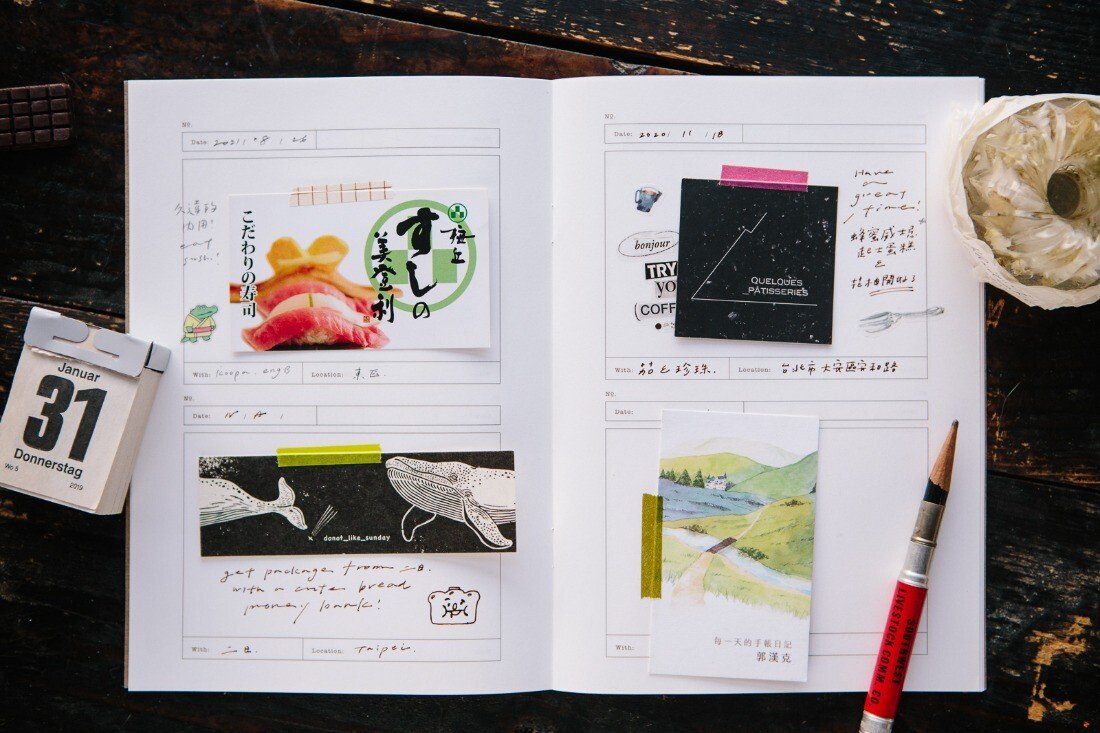 No.
Date: 2021 / 08 / 26
久違的
內用!
eat
sushi!
極上
すしの
美登利
こだわりの寿司
With: koopa. eng B
Location: 東区.
No.
Date:
donot_like_sunday
get packages from 二日.
with a cute bread
money bank!
With: 二日.
Location: Taipei.
No.
Date: 2020 / 11 / 18
bonjour
TRY
yo
COFF
QUELQUES
_PÂTISSERIES
Have
a
great
time!
蜂蜜威士忌
起士蛋糕
&
With: 茄& 珍珠.
Location: 台北市大安區安和路
No.
Date:
With:
每一天的手帳日記
郭漢克
Januar
31
Donnerstag
Wo 5
2019
SOUTHWEST
LIVESTOCK COMM. CO